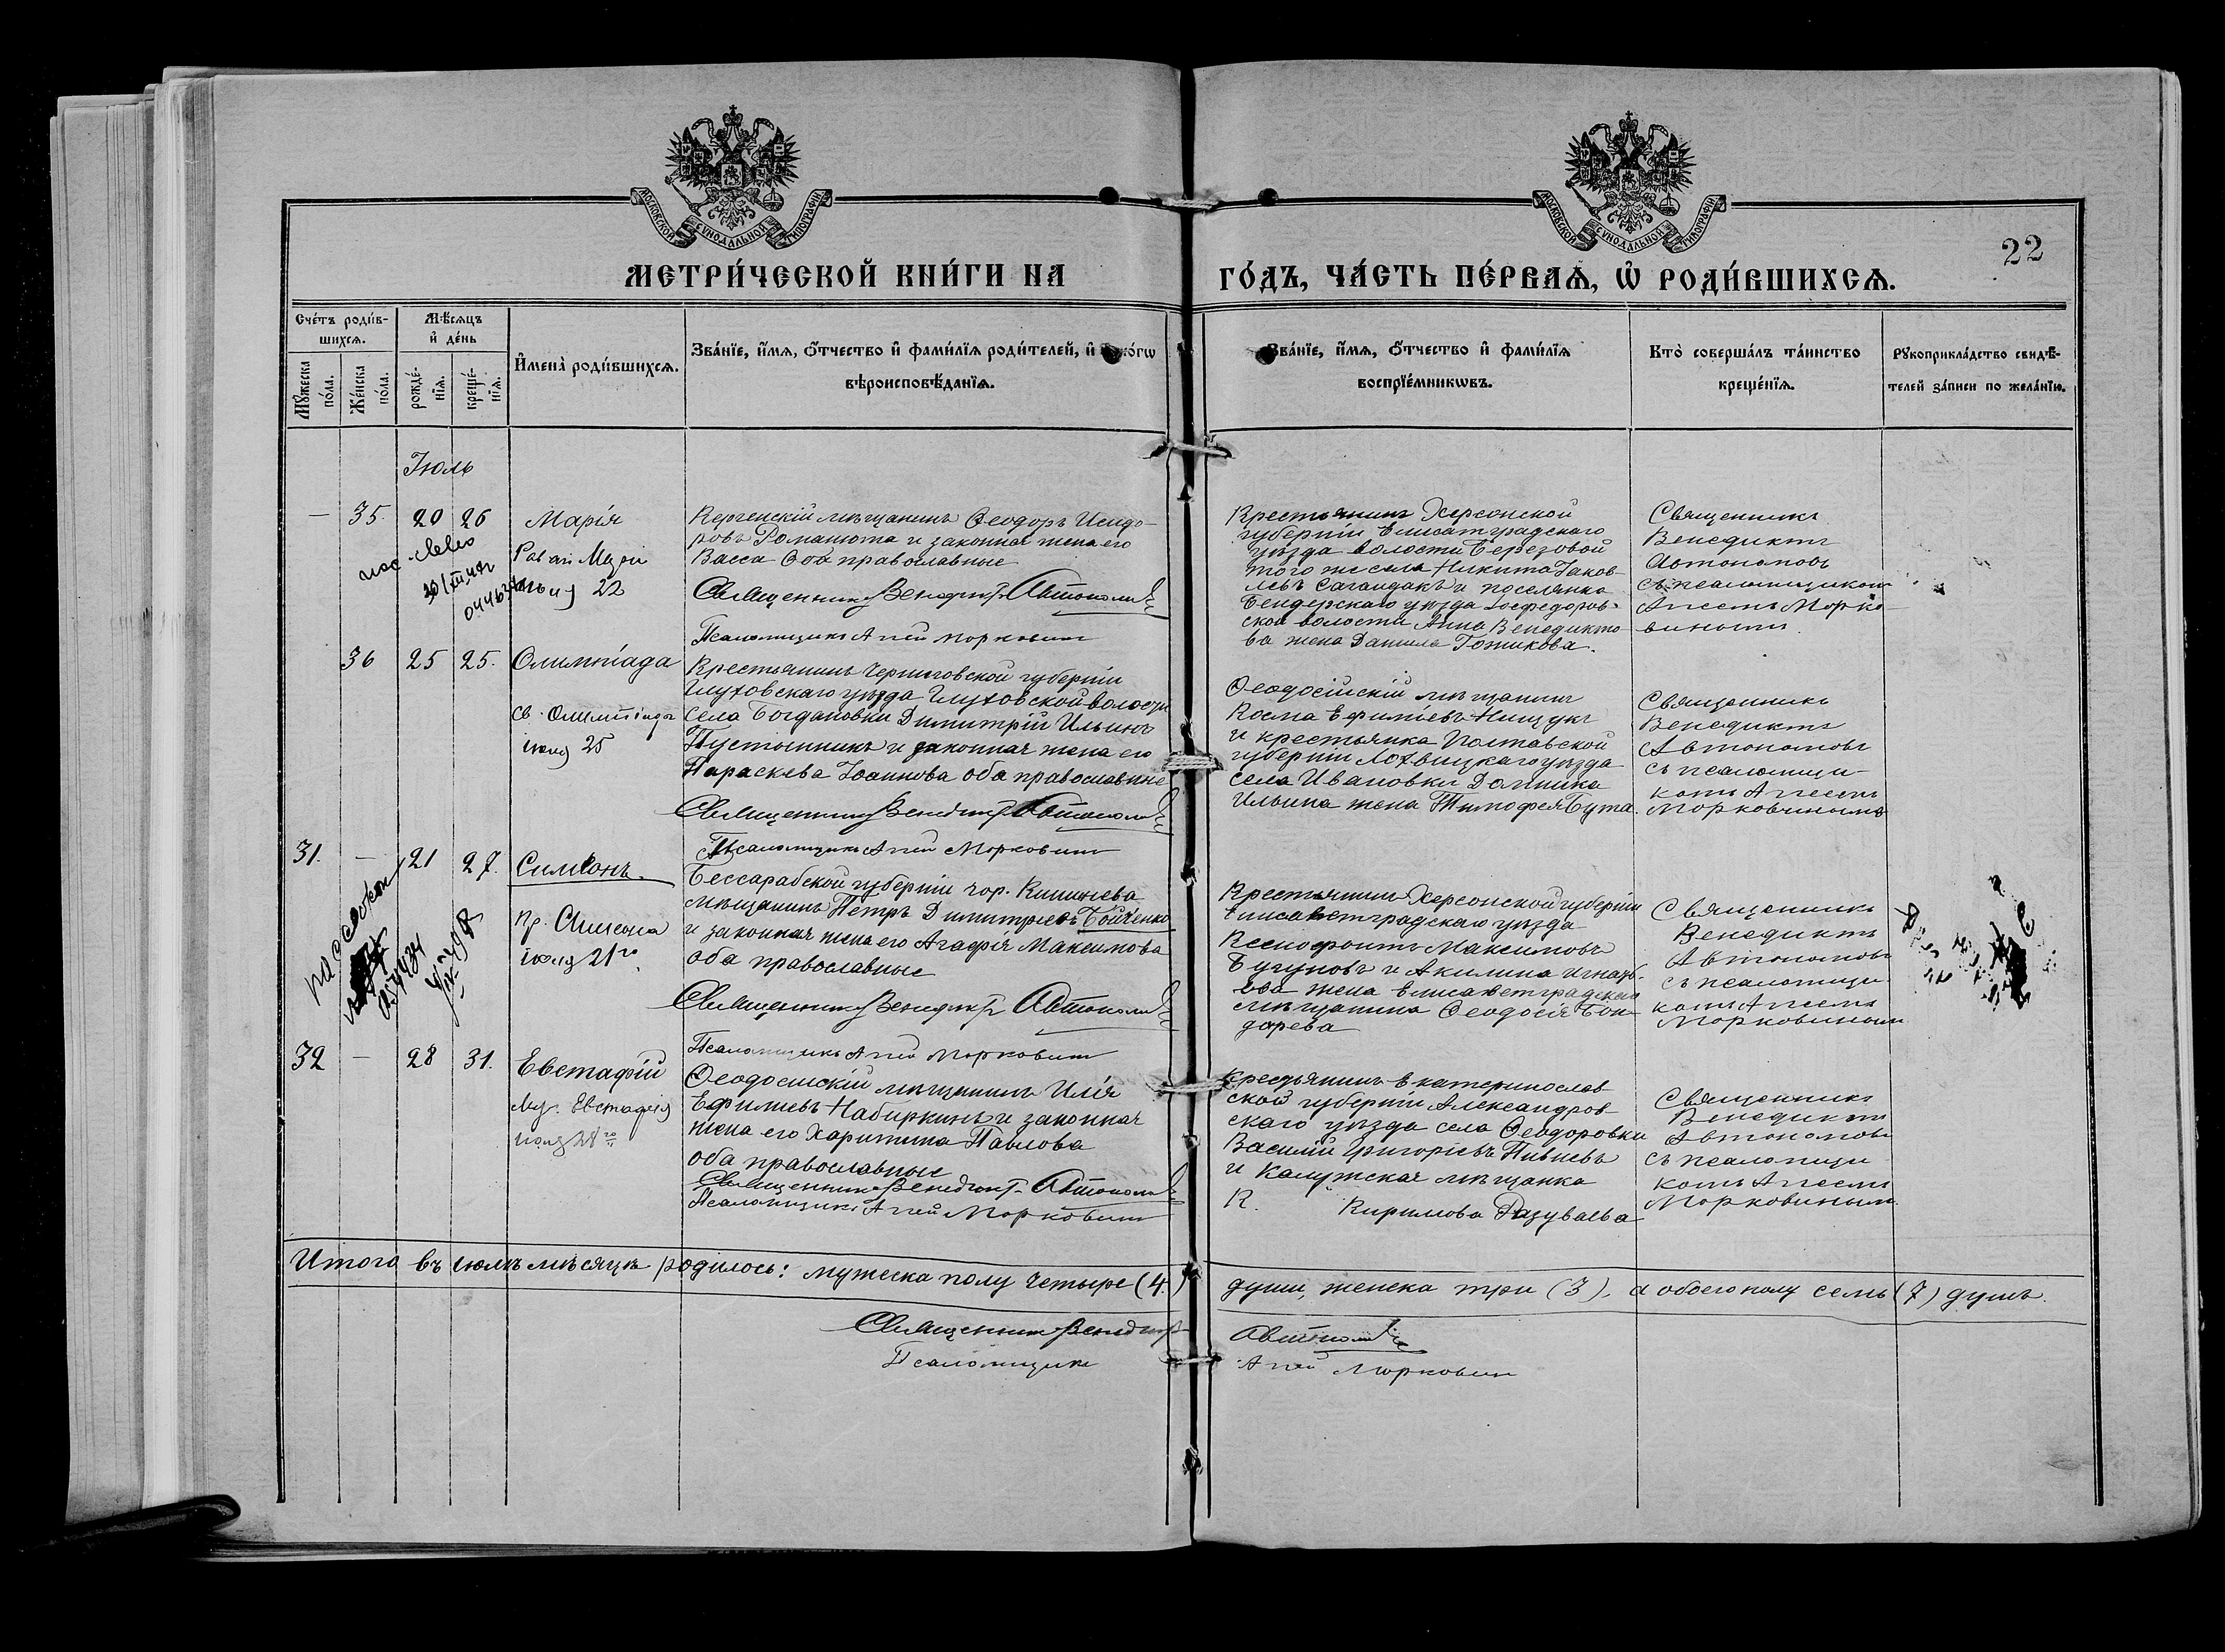 МОСКОВСКОЙ СѴНОДАЛЬНОЙ ТИПОГРАФІИ.
МОСКОВСКОЙ СѴНОДАЛЬНОЙ ТИПОГРАФІИ.
22
МЕТРИ́ЧЕСКОЙ КНИ́ГИ НА
ГО́ДЪ, ЧА́СТЬ ПЕ́РВАѦ, Ѡ҆ РОДИ́ВШИХСѦ.
Сче́тъ роди́в-
шихсѧ.
Мꙋ́жеска по́ла.
Же́нска по́ла.
Мѣ́сѧцъ
и҆ де́нь
рожде́-
нїѧ.
креще́-
нїѧ.
И҆мена̀ роди́вшихсѧ.
Зва́нїе, и҆́мѧ, ѻ҆́тчество и҆ фами́лїѧ роди́телей, и҆ ко́гѡ
вѣроисповѣ́данїѧ.
Зва́нїе, и҆́мѧ, ѻ҆́тчество и҆ фами́лїѧ
воспрїе́мникѡвъ.
Кто̀ соверша́лъ та́инство
креще́нїѧ.
Рꙋкоприкла́дство свидѣ́-
телей за́писи по жела́нїю.
Іюль
— 35. 20 26
Марія
22
Керченскій мѣщанинъ Ѳеодоръ Исидо-
ровъ Романюта и законная жена его
Васса Оба православные
Священникъ Венедиктъ Автономовъ
Псаломщикъ Агей Морковин
Крестьянинъ Херсонской
губерніи Елисатградскаго
уѣзда волости Березовой
того же села Никита Іаков-
левъ Сагайдакъ и поселянка
Бендерскаго уѣзда
ской волости Анна Венедикто
ва жена Данила Гожикова.
Священникъ
Венедиктъ
Автономовъ
съ псаломщикомъ
Агеемъ Морко-
винымъ.
36 25 25.
Олимпіада
св. Олимпіада
іюля 25
Крестьянинъ Черниговской губерніи
Глуховскаго уѣзда Глуховской волости
села Богдановки Димитрій Ильинъ
Пустынникъ и законная жена его
Параскева Іоаннова оба православные
Священникъ Венедиктъ Автономовъ
Псаломщикъ Агей Морковин
Ѳеодосійскій мѣщанинъ
Косма Ефиміевъ Нищукъ
и крестьянка Полтавской
губерніи Лохвицкаго уѣзда
села Ивановки Домника
Ильина жена Тимофея Бута.
Священникъ
Венедиктъ
Автономовъ
съ псаломщи-
комъ Агеемъ
Морковинымъ
31. — 21 27.
Симеонъ.
Пр. Симеона
іюля 21го
Бессарабской губерніи гор. Кишинева
мѣщанинъ Петръ Димитріевъ Бойченко
и законная жена его Агафія Максимова
оба православные
Священникъ Венедиктъ Автономовъ
Псаломщикъ Агей Морковин
Крестьянинъ Херсонской губерніи
Елисаветградскаго уѣзда
Ксенофонтъ Максимовъ
Бугуновъ и Акилина Игнать-
ева жена Елисаветградскаго
мѣщанина Ѳеодосія Бон-
дарева
Священникъ
Венедиктъ
Автономовъ
съ псаломщи-
комъ Агеемъ
Морковинымъ
32 — 28 31.
Евстафій
Муч. Евстафія
іюля 28го
Ѳеодосійскій мѣщанинъ Илія
Ефимьевъ Набиркинъ и законная
жена его Харитина Павлова
оба православные
Священникъ Венедиктъ Автономовъ
Псаломщикъ Агей Морковин
Крестьянинъ Екатеринослав
ской губерніи Александров
скаго уѣзда села Ѳеодоровки
Василій Григоріевъ Пивневъ
и Калужская мѣщанка
К. Кирилова Разуваева
Священникъ
Венедиктъ
Автономовъ
съ псаломщи
комъ Агеемъ
Морковинымъ.
Итого въ іюлѣ мѣсяцѣ родилось: мужеска полу четыре (4.)
души, женска три (3), а обоего полу семь (7) душъ.
Священникъ Венедиктъ
Автономовъ
Псаломщикъ
Агей Морковин